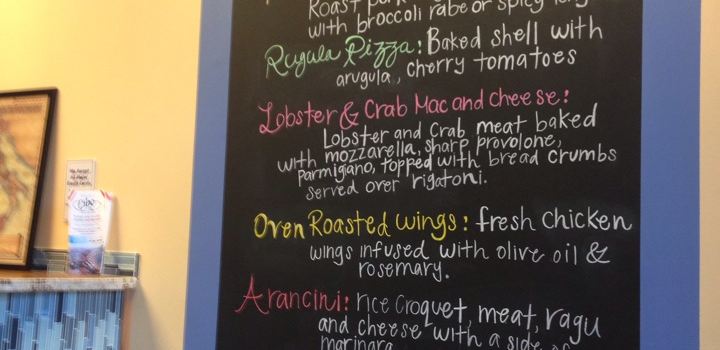 Roast pork
with broccoli rabe or spicy
Rugula Pizza: Baked shell with
arugula, cherry tomatoes
Lobster & Crab Mac and cheese:
Lobster and Crab meat baked
with mozzarella, sharp provolone,
parmigano, topped with bread crumbs
served over rigatoni.
Oven Roasted wings: fresh chicken
wings infused with olive oil &
rosemary.
Arancini: rice croquet, meat, ragu
and cheese with a side of
marinara